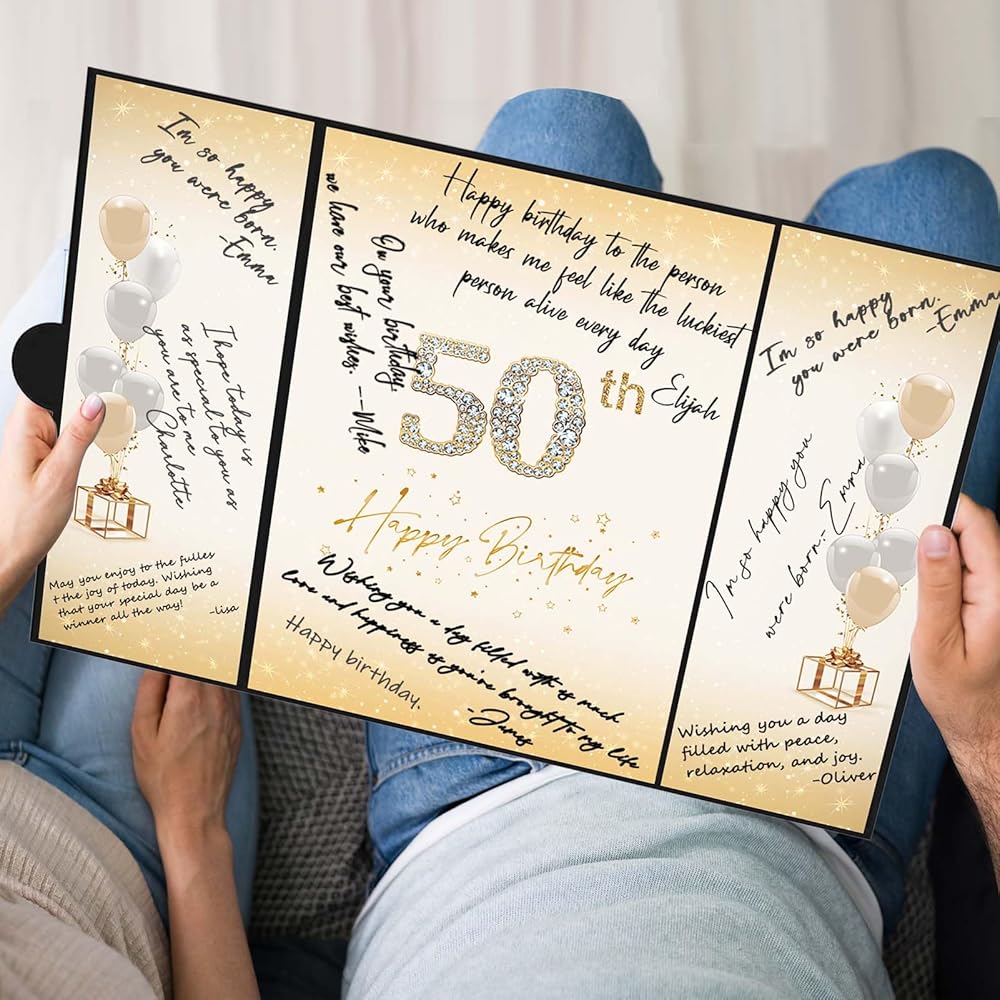 I'm so happy
you were born.
-Emma
I hope today is
as special to you as
you are to me
Charlotte
May you enjoy to the fulles
t the joy of today. Wishing
that your special day be a
winner all the way!
-lisa
Happy birthday to the person
who makes me feel like the luckiest
person alive every day
Elijah
On your birthday,
we have our best wishes. --Mike
50th
Happy Birthday
Wishing you a day filled with as much
love and happiness as you've brought to my life
-James
Happy birthday.
I'm so happy
you were born.
-Emma
I'm so happy you
were born.- Emma
Wishing you a day
filled with peace,
relaxation, and joy.
-Oliver